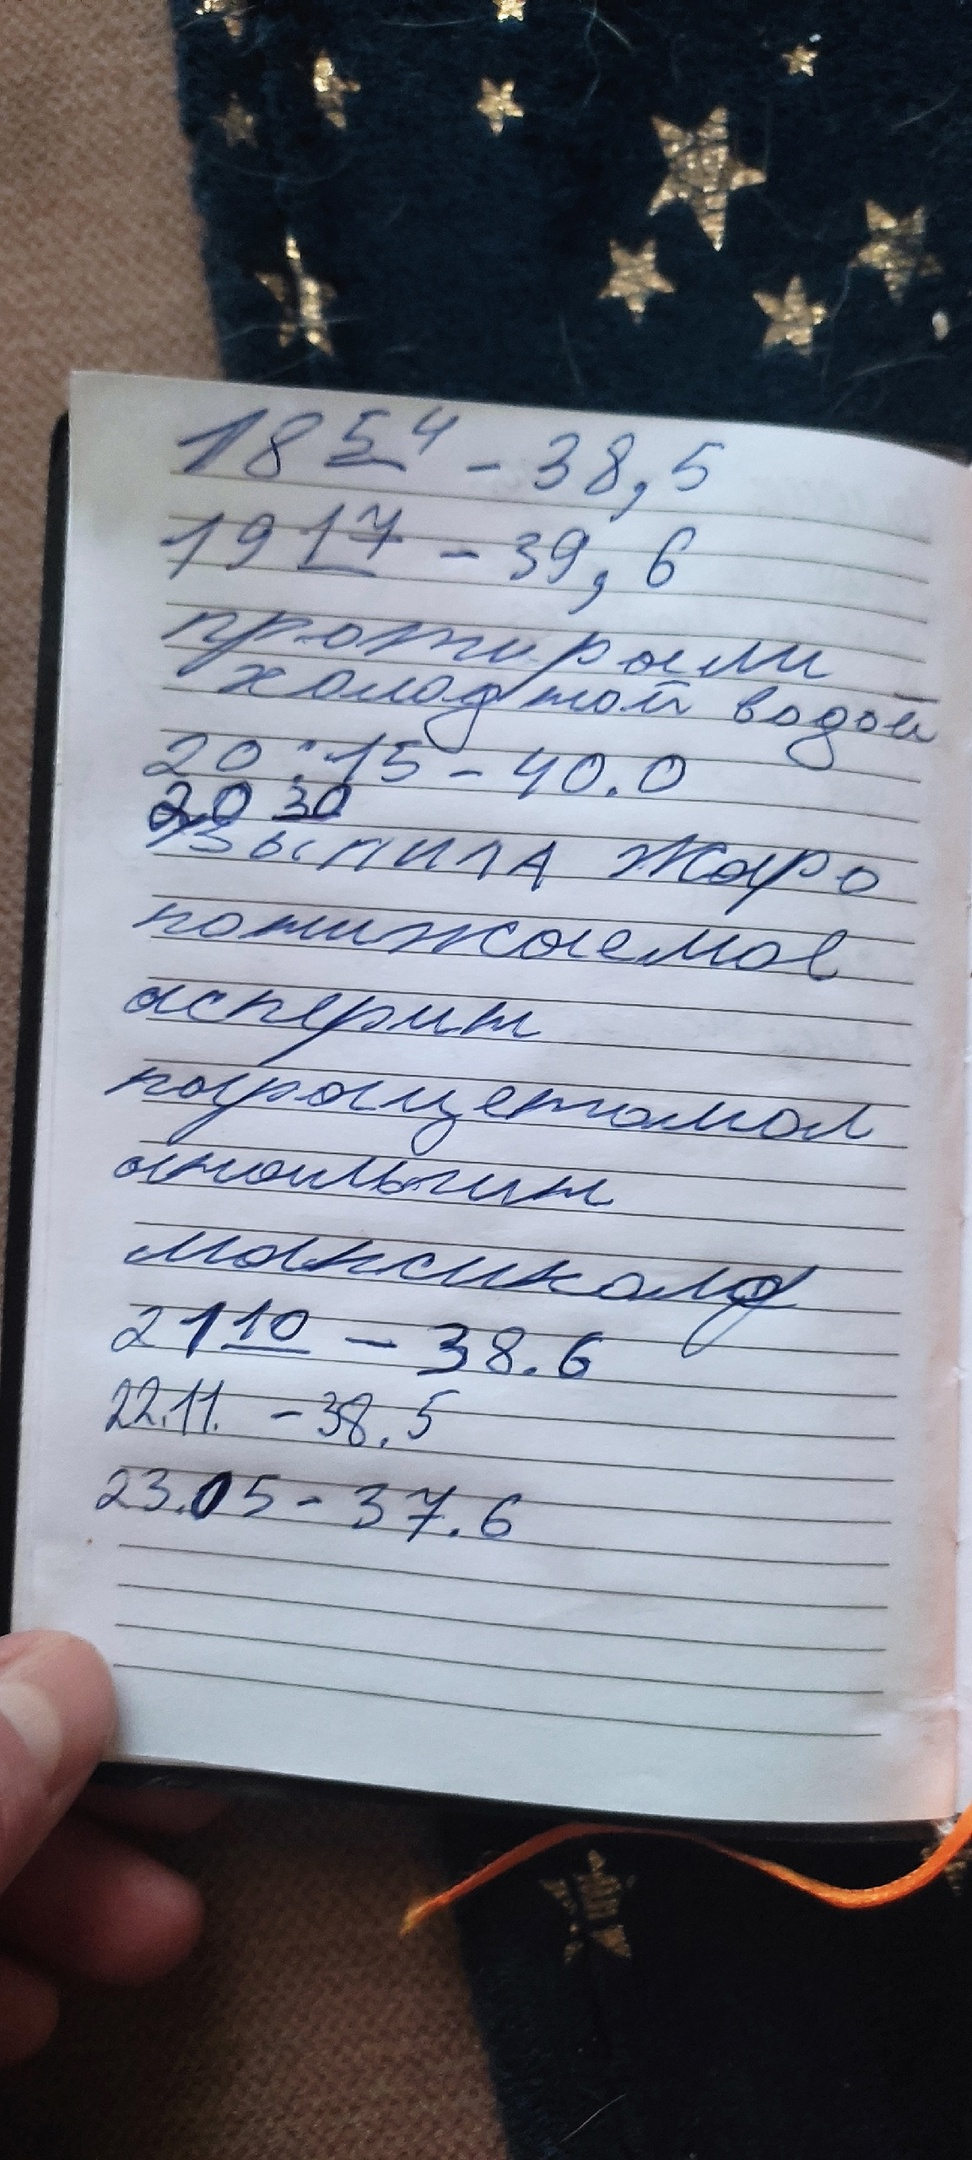 18 54 - 38,5
19 17 - 39,6
протирали
холодной водой
20:15 - 40.0
20 30
Выпила Жаро
понижаемое
асперин
парацетамол
анальгин
максиколд
21 10 - 38.6
22.11. - 38.5
23.05 - 37.6